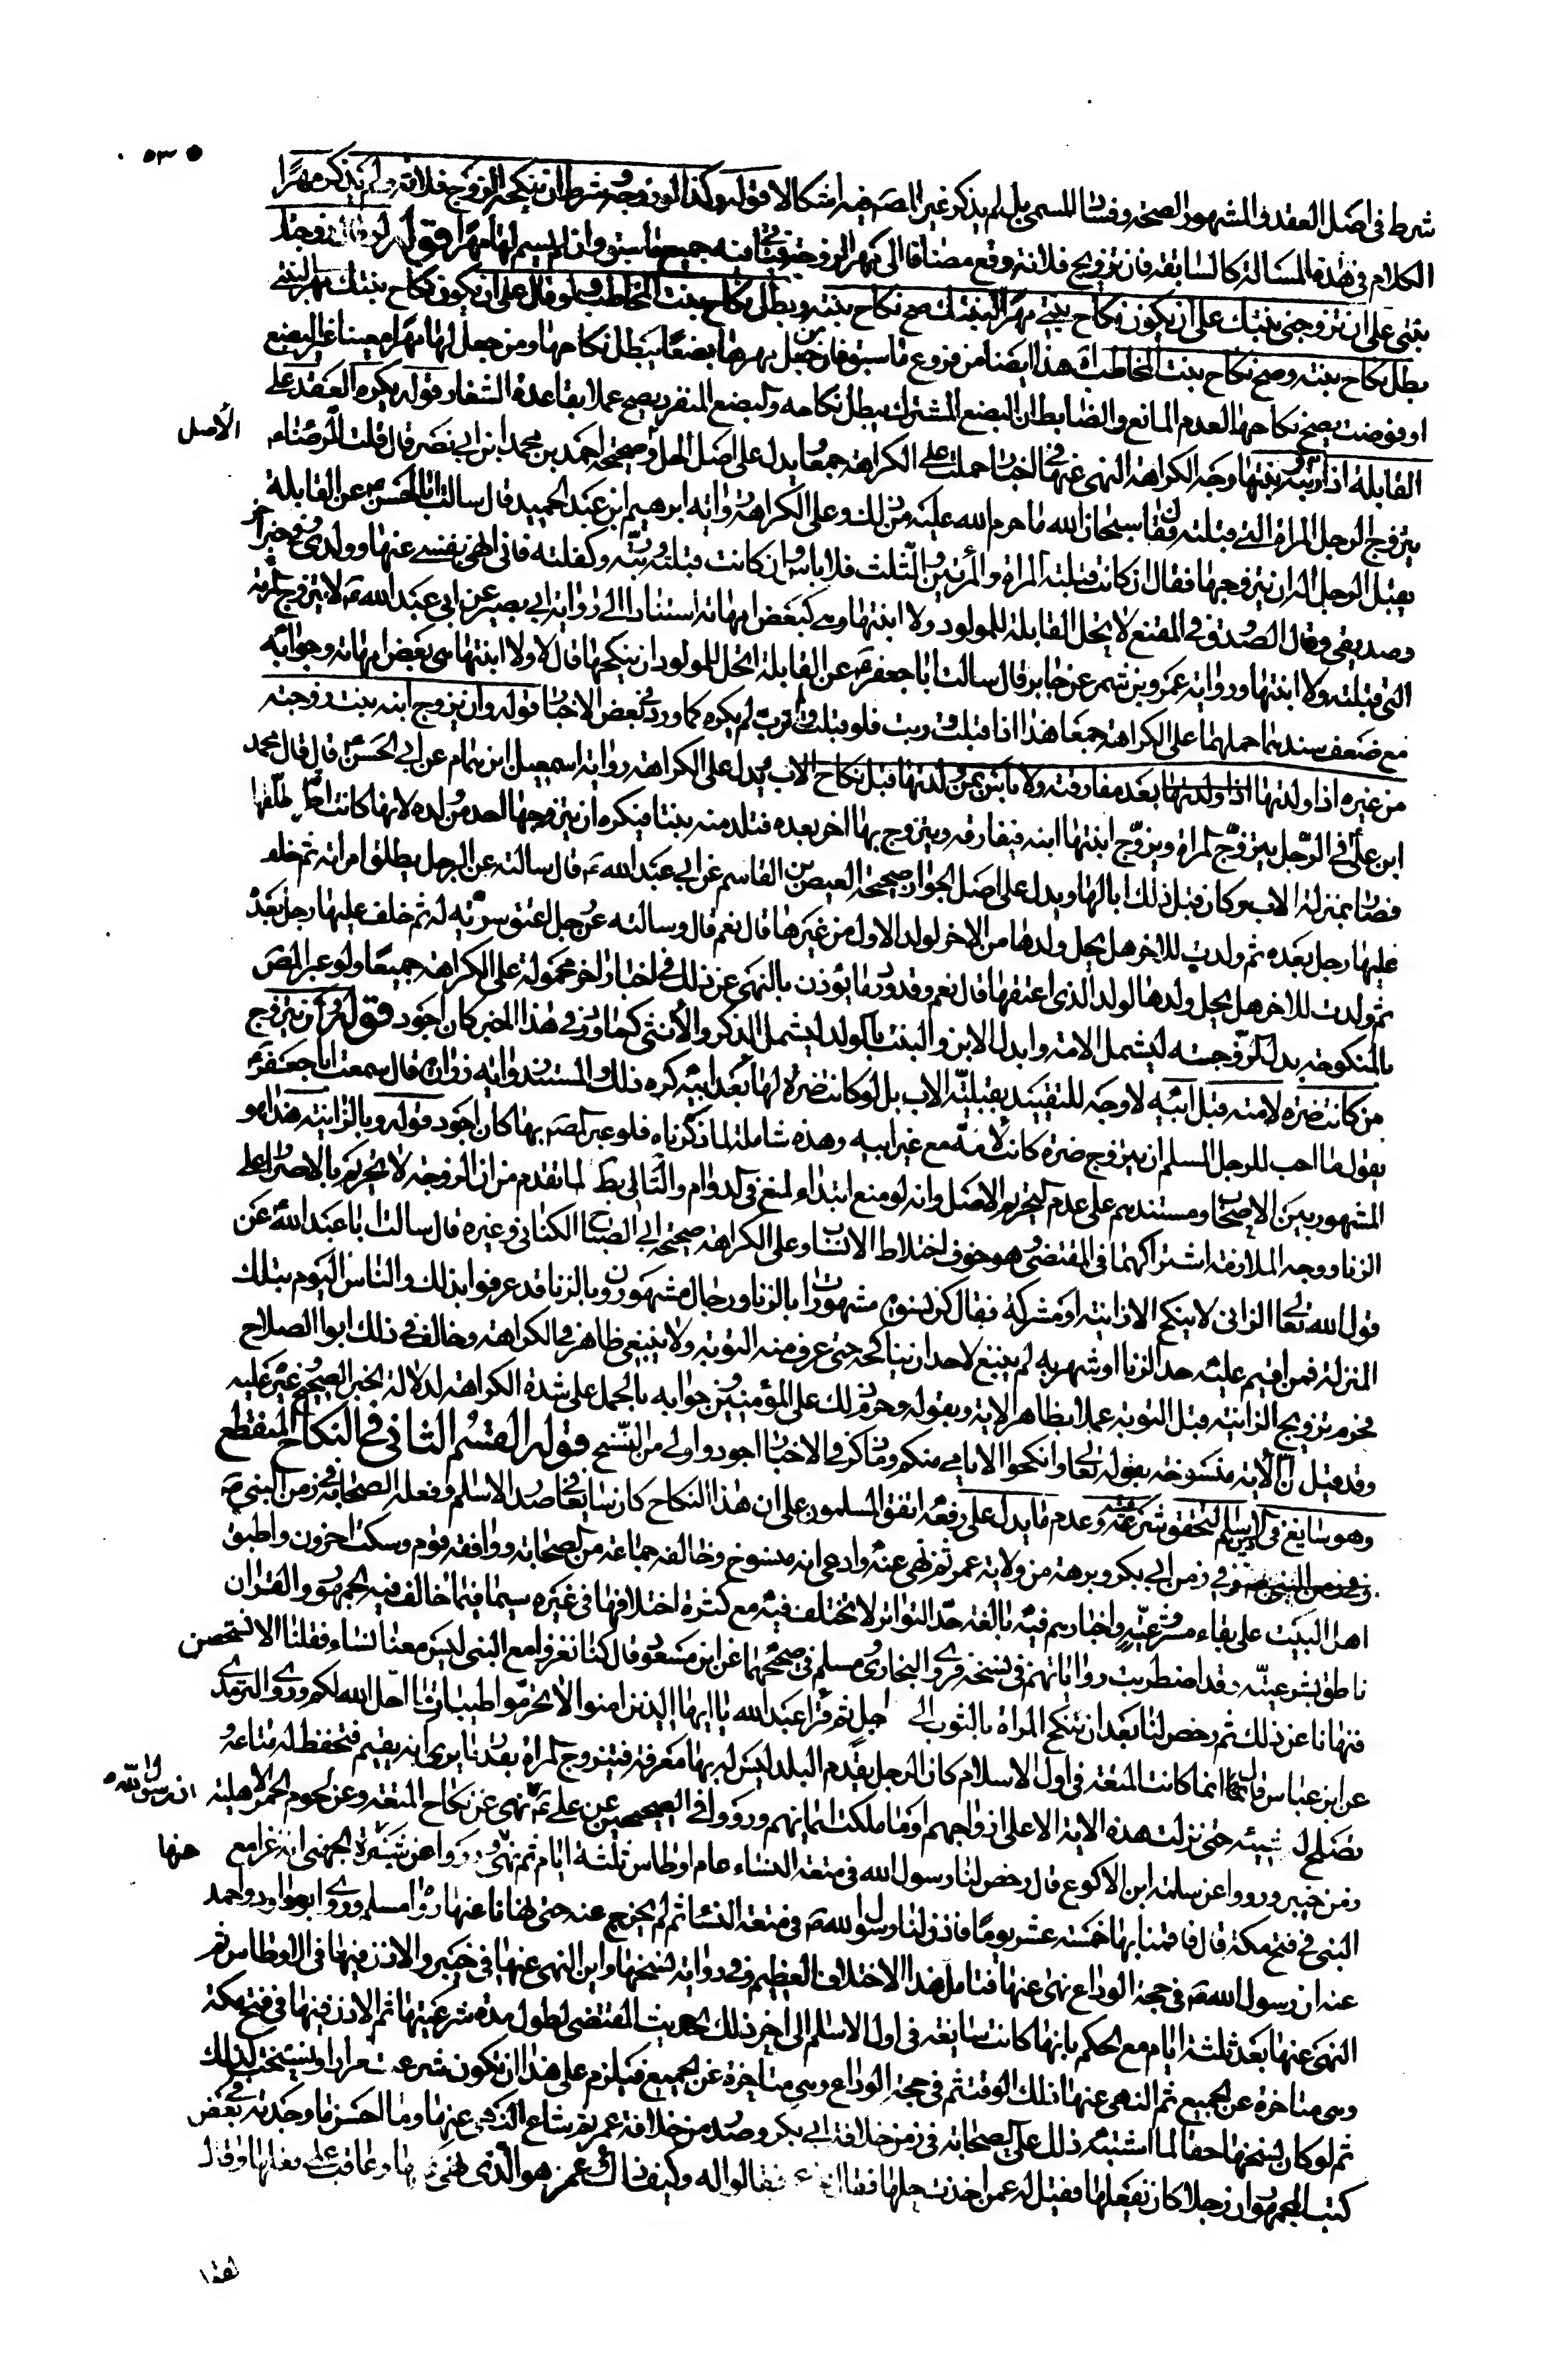 ٥٣
شرط فى اصل العقد والمشهور الصحة وفساد المسمى بل لم يذكر غير المصـ فيه اشكالا قوله وكذا لو زوجه وشرط ان ينكحه الزوج فلانة ولم يذكر مهرا
الكلام فى هذه المسالة كالسابقة فان تزويج فلانة وقع مضافا الى مهر الزوجة فياتى فيه جميع ما سبق وان لم يسم لها مهرا قوله لو قال زوجتك
بنتى على ان تزوجنى بنتك على ان يكون نكاح بنتى مهرا لبنتك صح نكاح بنته وبطل نكاح بنت المخاطب ولو قال على ان يكون نكاح بنتك مهر لبنتى
بطل نكاح بنته وصح نكاح بنت المخاطب هذا ايضا من فروع ما سبق فان من جعل مهرها بضعا يبطل نكاحها ومن جعل لها مهرا معينا غير البضع
او فوضت يصح نكاحها لعدم المانع والضابط ان البضع المشترك يبطل نكاحه والبضع المنفرد يصح عملا بقاعدة الشغار قوله يكره العقد على
القابلة اذا ربته وبنتها وجه الكراهة النهى عنها فى اخبار حملت على الكراهة جمعا يدل على اصل الحل صحيحة احمد بن محمد ابن ابى نصر قال قلت للرضا ع
الاصل
يتزوج الرجل المراة التى قبلته فقال سبحان الله ما حرم الله عليه من ذلك وعلى الكراهة رواية ابرهيم ابن عبد الحميد قال سالت ابا الحسن ع عن القابلة
تقبل الرجل اله ان يتزوجها فقال ان كانت قبلته المرة والمرتين والثلث فلا باس وان كانت قبلته وربته وكفلته فانى انهى نفسى عنها وولدى وفى خبر آخر
وصديقى وقال الصدوق فى المقنع لا يحل القابلة للمولود ولا ابنتها وهى كبعض امهاته استنادا الى رواية ابى بصير عن ابى عبد الله ع لا يتزوج المراة
التى قبلته ولا ابنتها ورواية عمرو بن شمر عن جابر قال سالت ابا جعفر ع عن القابلة ايحل للمولود ان ينكحها قال لا ولا ابنتها هى بعض امهاته وجوابه
مع ضعف سندهما حملهما على الكراهة جمعا هذا اذا قبلت وربت فلو قبلت ولم ترب لم يكره كما ورد فى بعض الاخبار قوله وان يزوج ابنه بنت زوجته
من غيره اذا ولدتها بعد مفارقته ولا باس بمن ولدتها قبل نكاح الاب يدل على الكراهة رواية اسمعيل ابن همام عن ابى الحسن ع قال قال محمد
ابن على فى الرجل يتزوج المراة ويزوج ابنتها ابنه فيفارقها ويتزوج بها اخر بعده فتلد منه بنتا فيكره ان يتزوجها احد من ولده لانها كانت امراته فطلقها
فصار بمنزلة الاب وكان قبل ذلك ابا لها ويدل على اصل الجواز صحيحة العيص بن القاسم عن ابى عبد الله ع قال سالته عن الرجل يطلق امراته ثم خلف
عليها رجل بعده ثم ولدت للاخر هل يحل ولدها من الاخر لولد الاول من غيرها قال نعم قال وسالته عن رجل اعتق سرية له ثم خلف عليها رجل بعده
ثم ولدت للاخر هل يحل ولدها لولد الذى اعتقها قال نعم وقد ورد ما يؤذن بالنهى عن ذلك فى اخبار اخر محمولة على الكراهة جميعا ولو عبر المصـ
بالمنكوحة بدل الزوجة ليشمل الامة وابدل الابن والبنت بالولد ليشمل الذكر والانثى كما ورد فى هذا الخبر كان اجود قوله وان يتزوج
من كانت ضرة لامه قبل ابيه لا وجه للتقييد بقبلية الاب بل لو كانت ضرة لها بعد ابيه كره ذلك والمستند رواية زرارة قال سمعت ابا جعفر ع
يقول ما احب للرجل المسلم ان يتزوج ضرة كانت لامه مع غير ابيه وهذه شاملة لما ذكرناه فلو عبر المصـ بها كان اجود قوله وبالزانية هذا هو
المشهور بين الاصحاب ومستندهم على عدم التحريم الاصل وانه لو منع ابتداء لمنع فى الدوام والتالى بط لما تقدم من ان الزوجة لا تحرم بالاصرار على
الزنا ووجه الملازمة اشتراكهما فى المقتضى وهو خوف اختلاط الانساب وعلى الكراهة صحيحة ابى الصباح الكنانى وغيره قال سالت ابا عبد الله ع عن
قول الله تعالى الزانى لا ينكح الا زانية او مشركة فقال كن نسوة مشهورات بالزنا ورجال مشهورون بالزنا قد عرفوا بذلك والناس اليوم بتلك
المنزلة فمن اقيم عليه حد الزنا او شهر به لم ينبغ لاحد ان يناكحه حتى عرف منه التوبة ولا ينبغى ظاهر فى الكراهة وخالف فى ذلك ابو الصلاح
فحرم تزويج الزانية قبل التوبة عملا بظاهر الاية وبقوله وحرم ذلك على المؤمنين وجوابه بالحمل على شدة الكراهة لدلالة الخبر الصحيح وغيره عليه
وقد قيل ان الاية منسوخة بقوله تعالى وانكحوا الايامى منكم وما ذكر فى الاخبار اجود واولى من النسخ قوله القسم الثانى فى النكاح المنقطع
وهو سايغ فى دين الاسلم لتحقق شرعيته وعدم ما يدل على رفعه اتفق المسلمون على ان هذا النكاح كان سايغا فى صدر الاسلم وفعله الصحابة فى زمن النبى ص
وفى زمن ابى بكر وبرهة من ولاية عمر ثم نهى عنه وادعى انه منسوخ وخالفه جماعة من الصحابة ووافقه قوم وسكت اخرون واطبق
اهل البيت على بقاء مشروعيته واخبارهم فيه بالغة حد التواتر لا تختلف فيه مع كثرة اختلافها فى غيره سيما فيما خالف فيه الجمهور والقران
ناطق بشرعيته وقد اضطربت رواياتهم فى نسخه فروى البخارى ومسلم فى صحيحهما عن ابن مسعود قال كنا نغزوا مع النبى ليس معنا نساء فقلنا الا نستخصى
فنهانا عن ذلك ثم رخص لنا بعد ان ننكح المراة بالثوب الى اجل ثم قرا عبد الله يا ايها الذين امنوا لا تحرموا طيبات ما احل الله لكم وروى الترمذى
عن ابن عباس قال انما كانت المتعة فى اول الاسلام كان الرجل يقدم البلد ليس له بها معرفة فيتزوج المراة بقدر ما يرى انه يقيم فتحفظ له متاعه
وتصلح له شيئه حتى نزلت هذه الاية الا على ازواجهم او ما ملكت ايمانهم ورووا فى الصحيحين عن على ع نهى عن نكاح المتعة وعن لحوم الحمر الاهلية
ان رسول الله ص
زمن خيبر ورووا عن سلمة ابن الاكوع قال رخص لنا رسول الله فى متعة النساء عام اوطاس ثلثة ايام ثم نهى ورووا عن سبرة الجهنى انه غزا مع
عنها
النبى فى فتح مكة قال فاقمنا بها خمسة عشر يوما فاذن لنا رسول الله ص فى متعة النساء ثم لم يخرج عنه حتى نهانا عنها رواه مسلم وروى ابو داود واحمد
عنه ان رسول الله ص فى حجة الوداع نهى عنها فتامل هذا الاختلاف العظيم فى رواية نسخها واين النهى عنها فى خيبر والاذن فيها فى الاوطاس ثم
النهى عنها بعد ثلثة ايام مع الحكم بانها كانت سايغة فى اول الاسلم الى اخر ذلك الحديث المقتضى لطول مدة شرعيتها ثم الاذن فيها فى فتح مكة
وهى متاخرة عن الجميع ثم النهى عنها ذلك الوقت ثم فى حجة الوداع وهى متاخرة عن الجميع فيلزم على هذا ان تكون شرعت مرارا ونسخت كذلك
ثم لو كان نسخها حقا لما اشتبه ذلك على الصحابة فى زمن خلافة ابى بكر وصدر من خلافة عمر ثم شاع النهى عنها وما احسن ما وجدته فى بعض
كتب الجمهور ان رجلا كان يفعلها فقيل له عمن اخذت حلها فقال عن عمر فقالوا له وكيف ذاك وعمر هو الذى نهى عنها وعاقب على فعلها فقال
لقوله